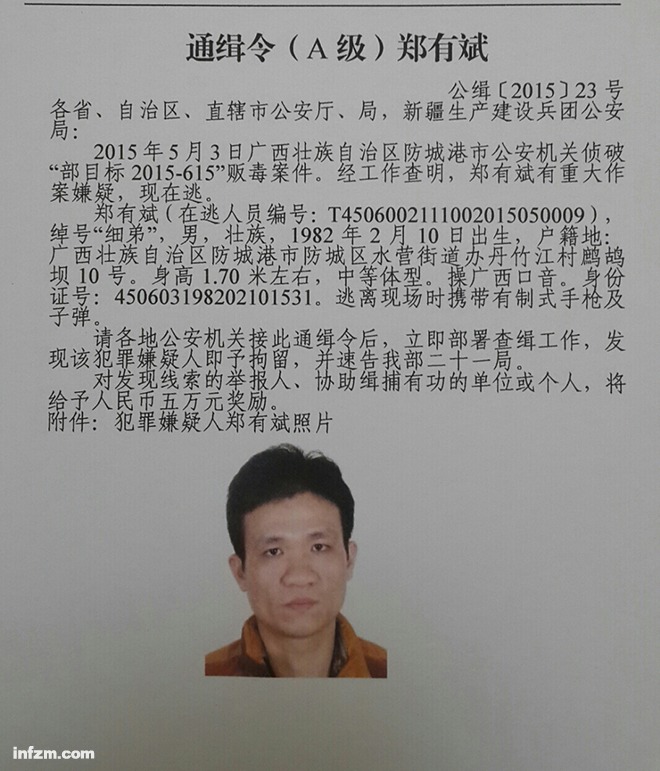 通缉令（A级）郑有斌
公缉〔2015〕23号
各省、自治区、直辖市公安厅、局，新疆生产建设兵团公安
局：
2015年5月3日广西壮族自治区防城港市公安机关侦破
“部目标2015-615”贩毒案件。经工作查明，郑有斌有重大作
案嫌疑，现在逃。
郑有斌（在逃人员编号：T4506002111002015050009），
绰号“细弟”，男，壮族，1982年2月10日出生，户籍地：
广西壮族自治区防城港市防城区水营街道办丹竹江村鹧鸪
坝10号。身高1.70米左右，中等体型。操广西口音。身份
证号：450603198202101531。逃离现场时携带有制式手枪及
子弹。
请各地公安机关接此通缉令后，立即部署查缉工作，发
现该犯罪嫌疑人即予拘留，并速告我部二十一局。
对发现线索的举报人、协助缉捕有功的单位或个人，将
给予人民币五万元奖励。
附件：犯罪嫌疑人郑有斌照片
infzm.com